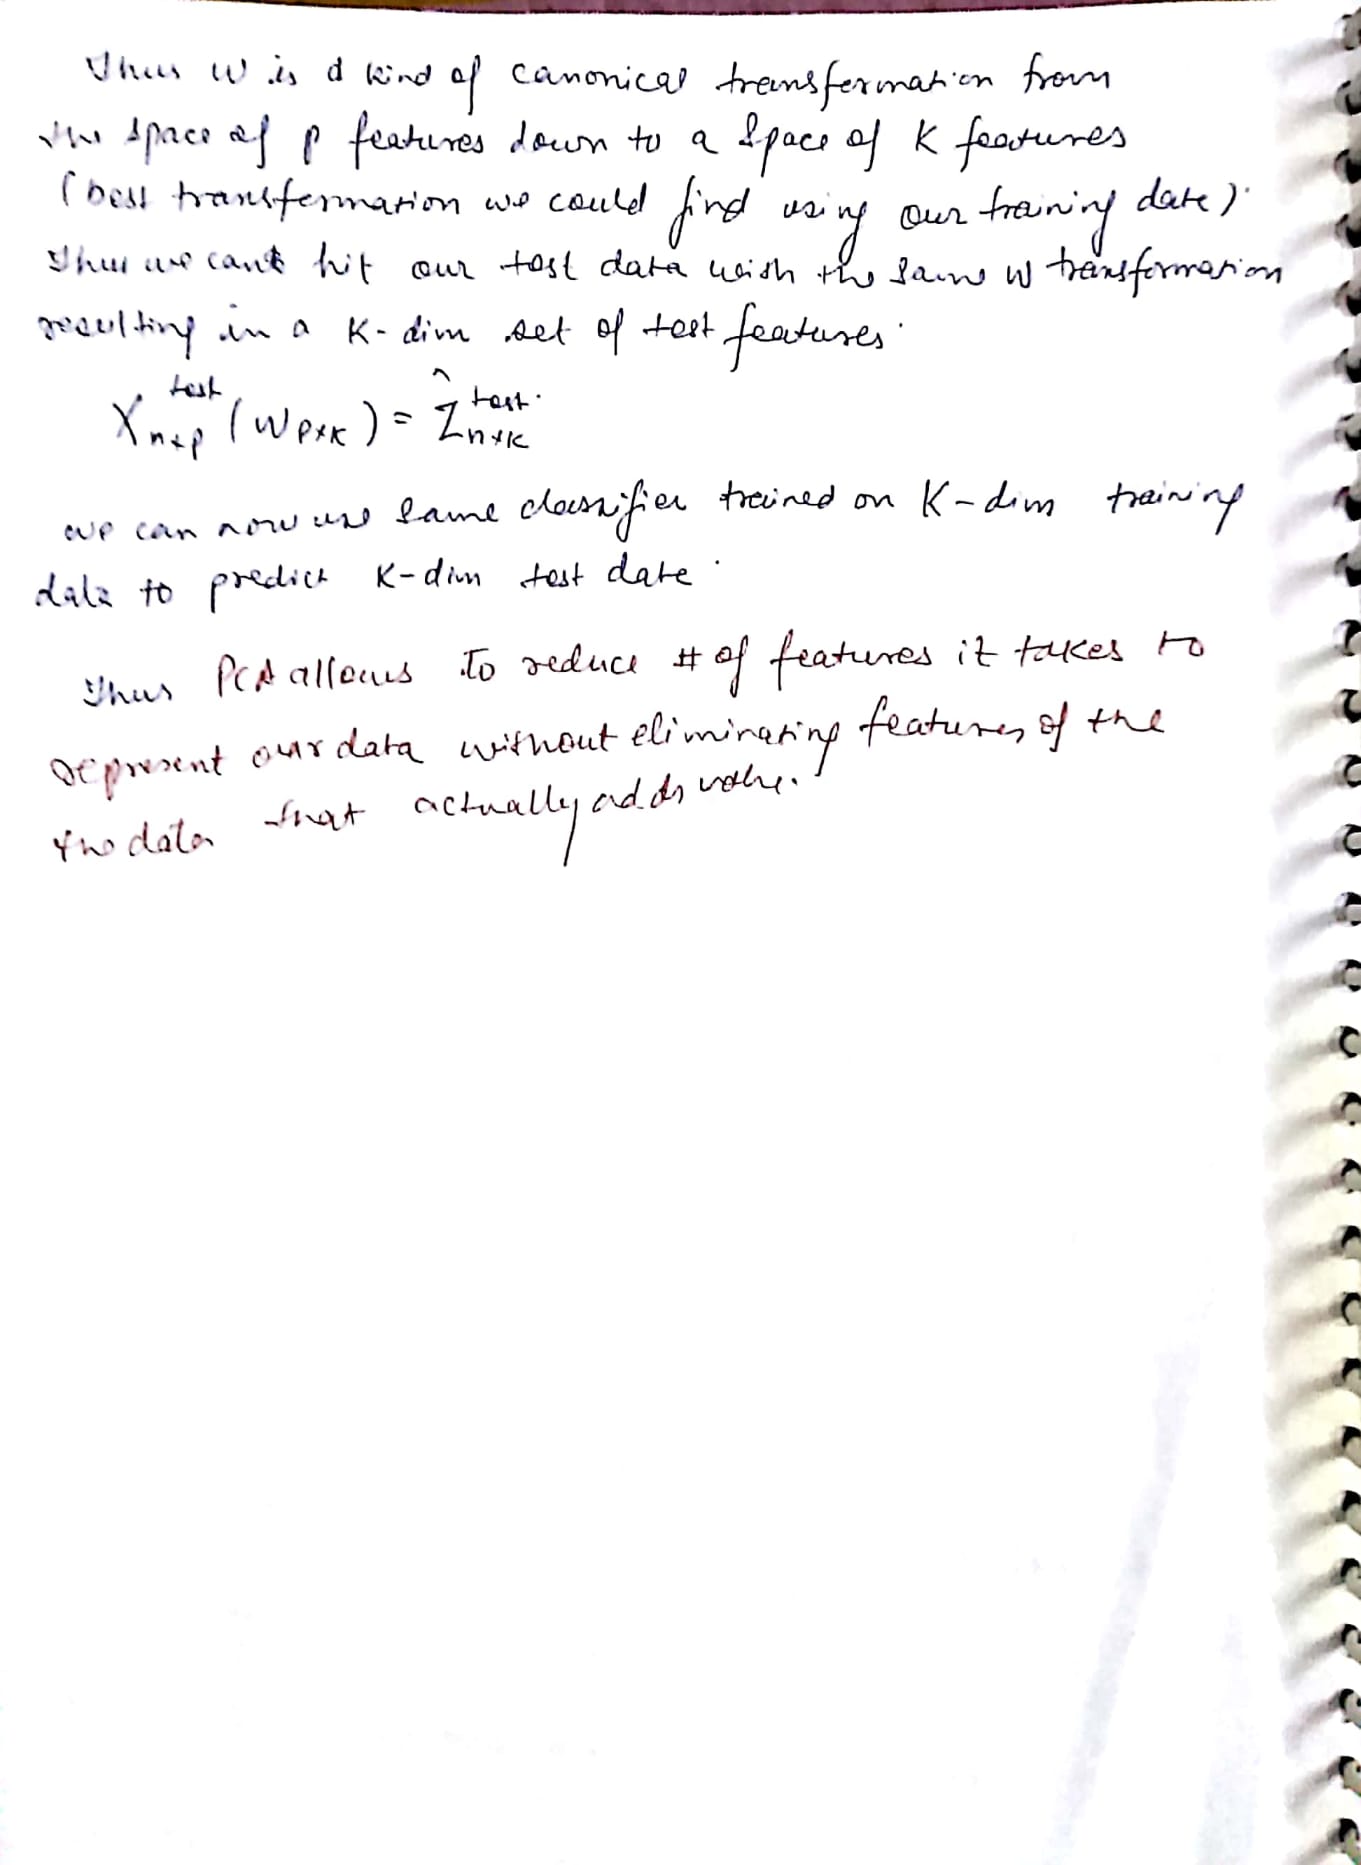 Thus W is a kind of canonical transformation from
the space of p features down to a space of K features
(best transformation we could find using our training data).
Thus we can hit our test data with the same W transformation
resulting in a K-dim set of test features.
X^test_{n×p} (W_{P×K}) = Ẑ^test._{n×K}
we can now use same classifier trained on K-dim training
data to predict K-dim test data.
Thus PCA allows To reduce # of features it takes to
represent our data without eliminating features of the
the data that actually adds value.